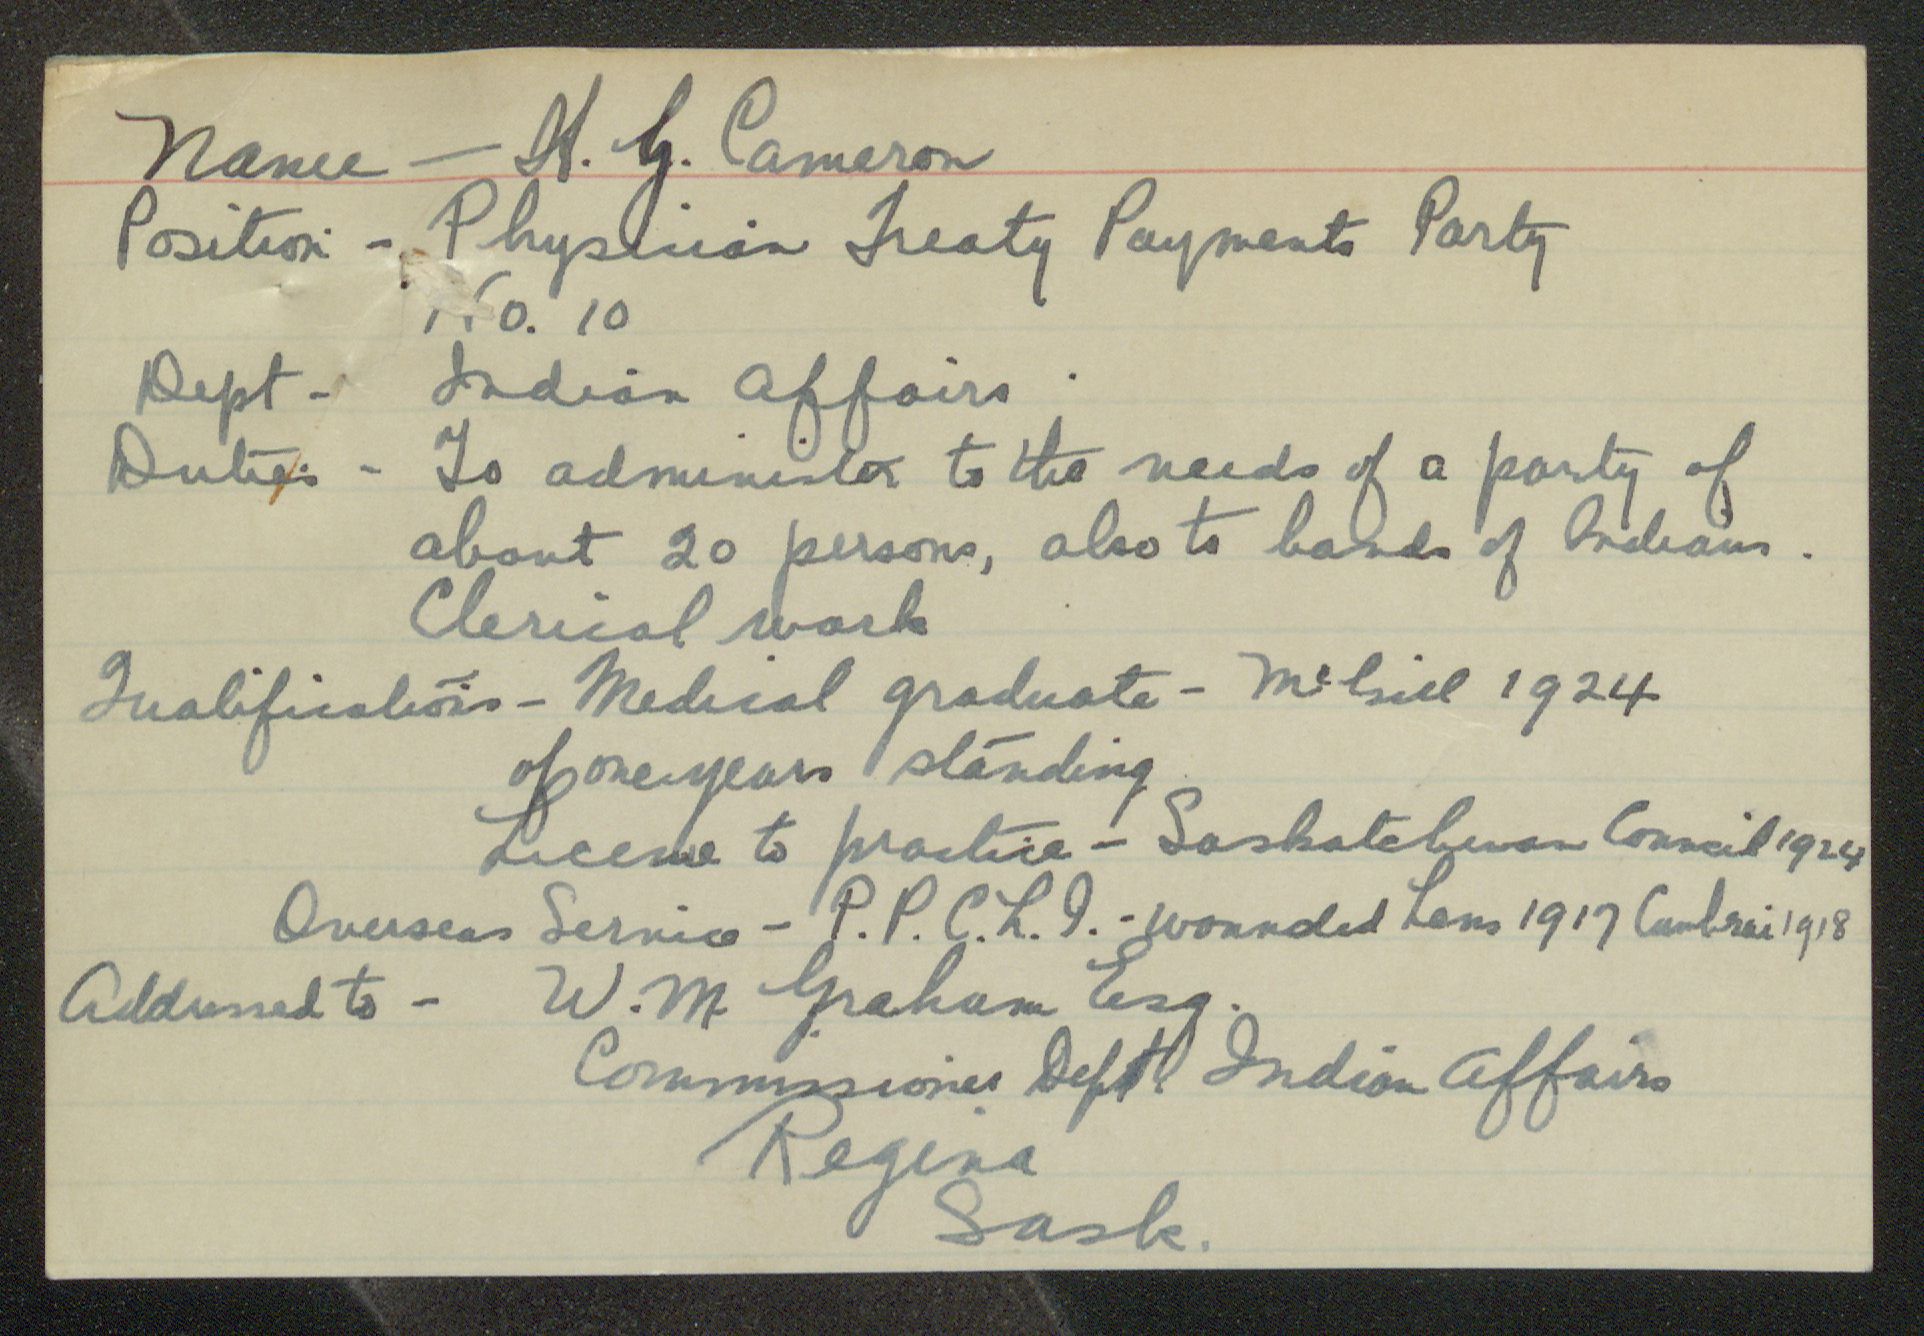 Name - H. G. Cameron
Position - Physician Treaty Payments Party
No. 10
Dept - Indian Affairs.
Duties - To administer to the needs of a party of
about 20 persons, also to bands of Indians.
Clerical work
Qualifications - Medical graduate - McGill 1924
of one years standing
License to practice - Saskatchewan Council 1924
Overseas Service - P. P. C. L. I. - wounded Lens 1917 Cambrai 1918
Addressed to - W. M. Graham Esq.
Commissioner Dept. Indian Affairs
Regina
Sask.